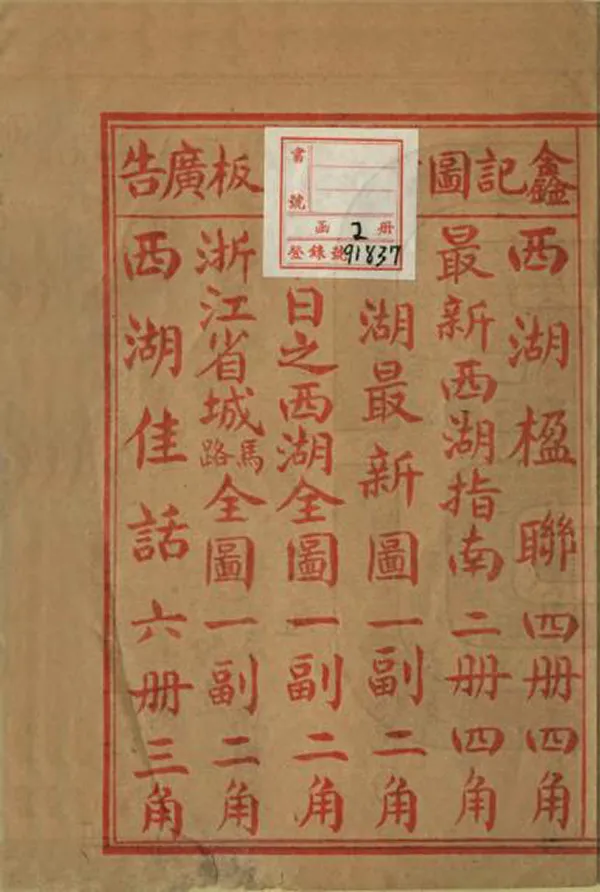 鑫記圖
板廣告
西湖楹聯四册四角
最新西湖指南二册四角
湖最新圖一副二角
日之西湖全圖一副二角
浙江省城馬路全圖一副二角
西湖佳話六册三角
書號
函 2 册
登錄號 91837